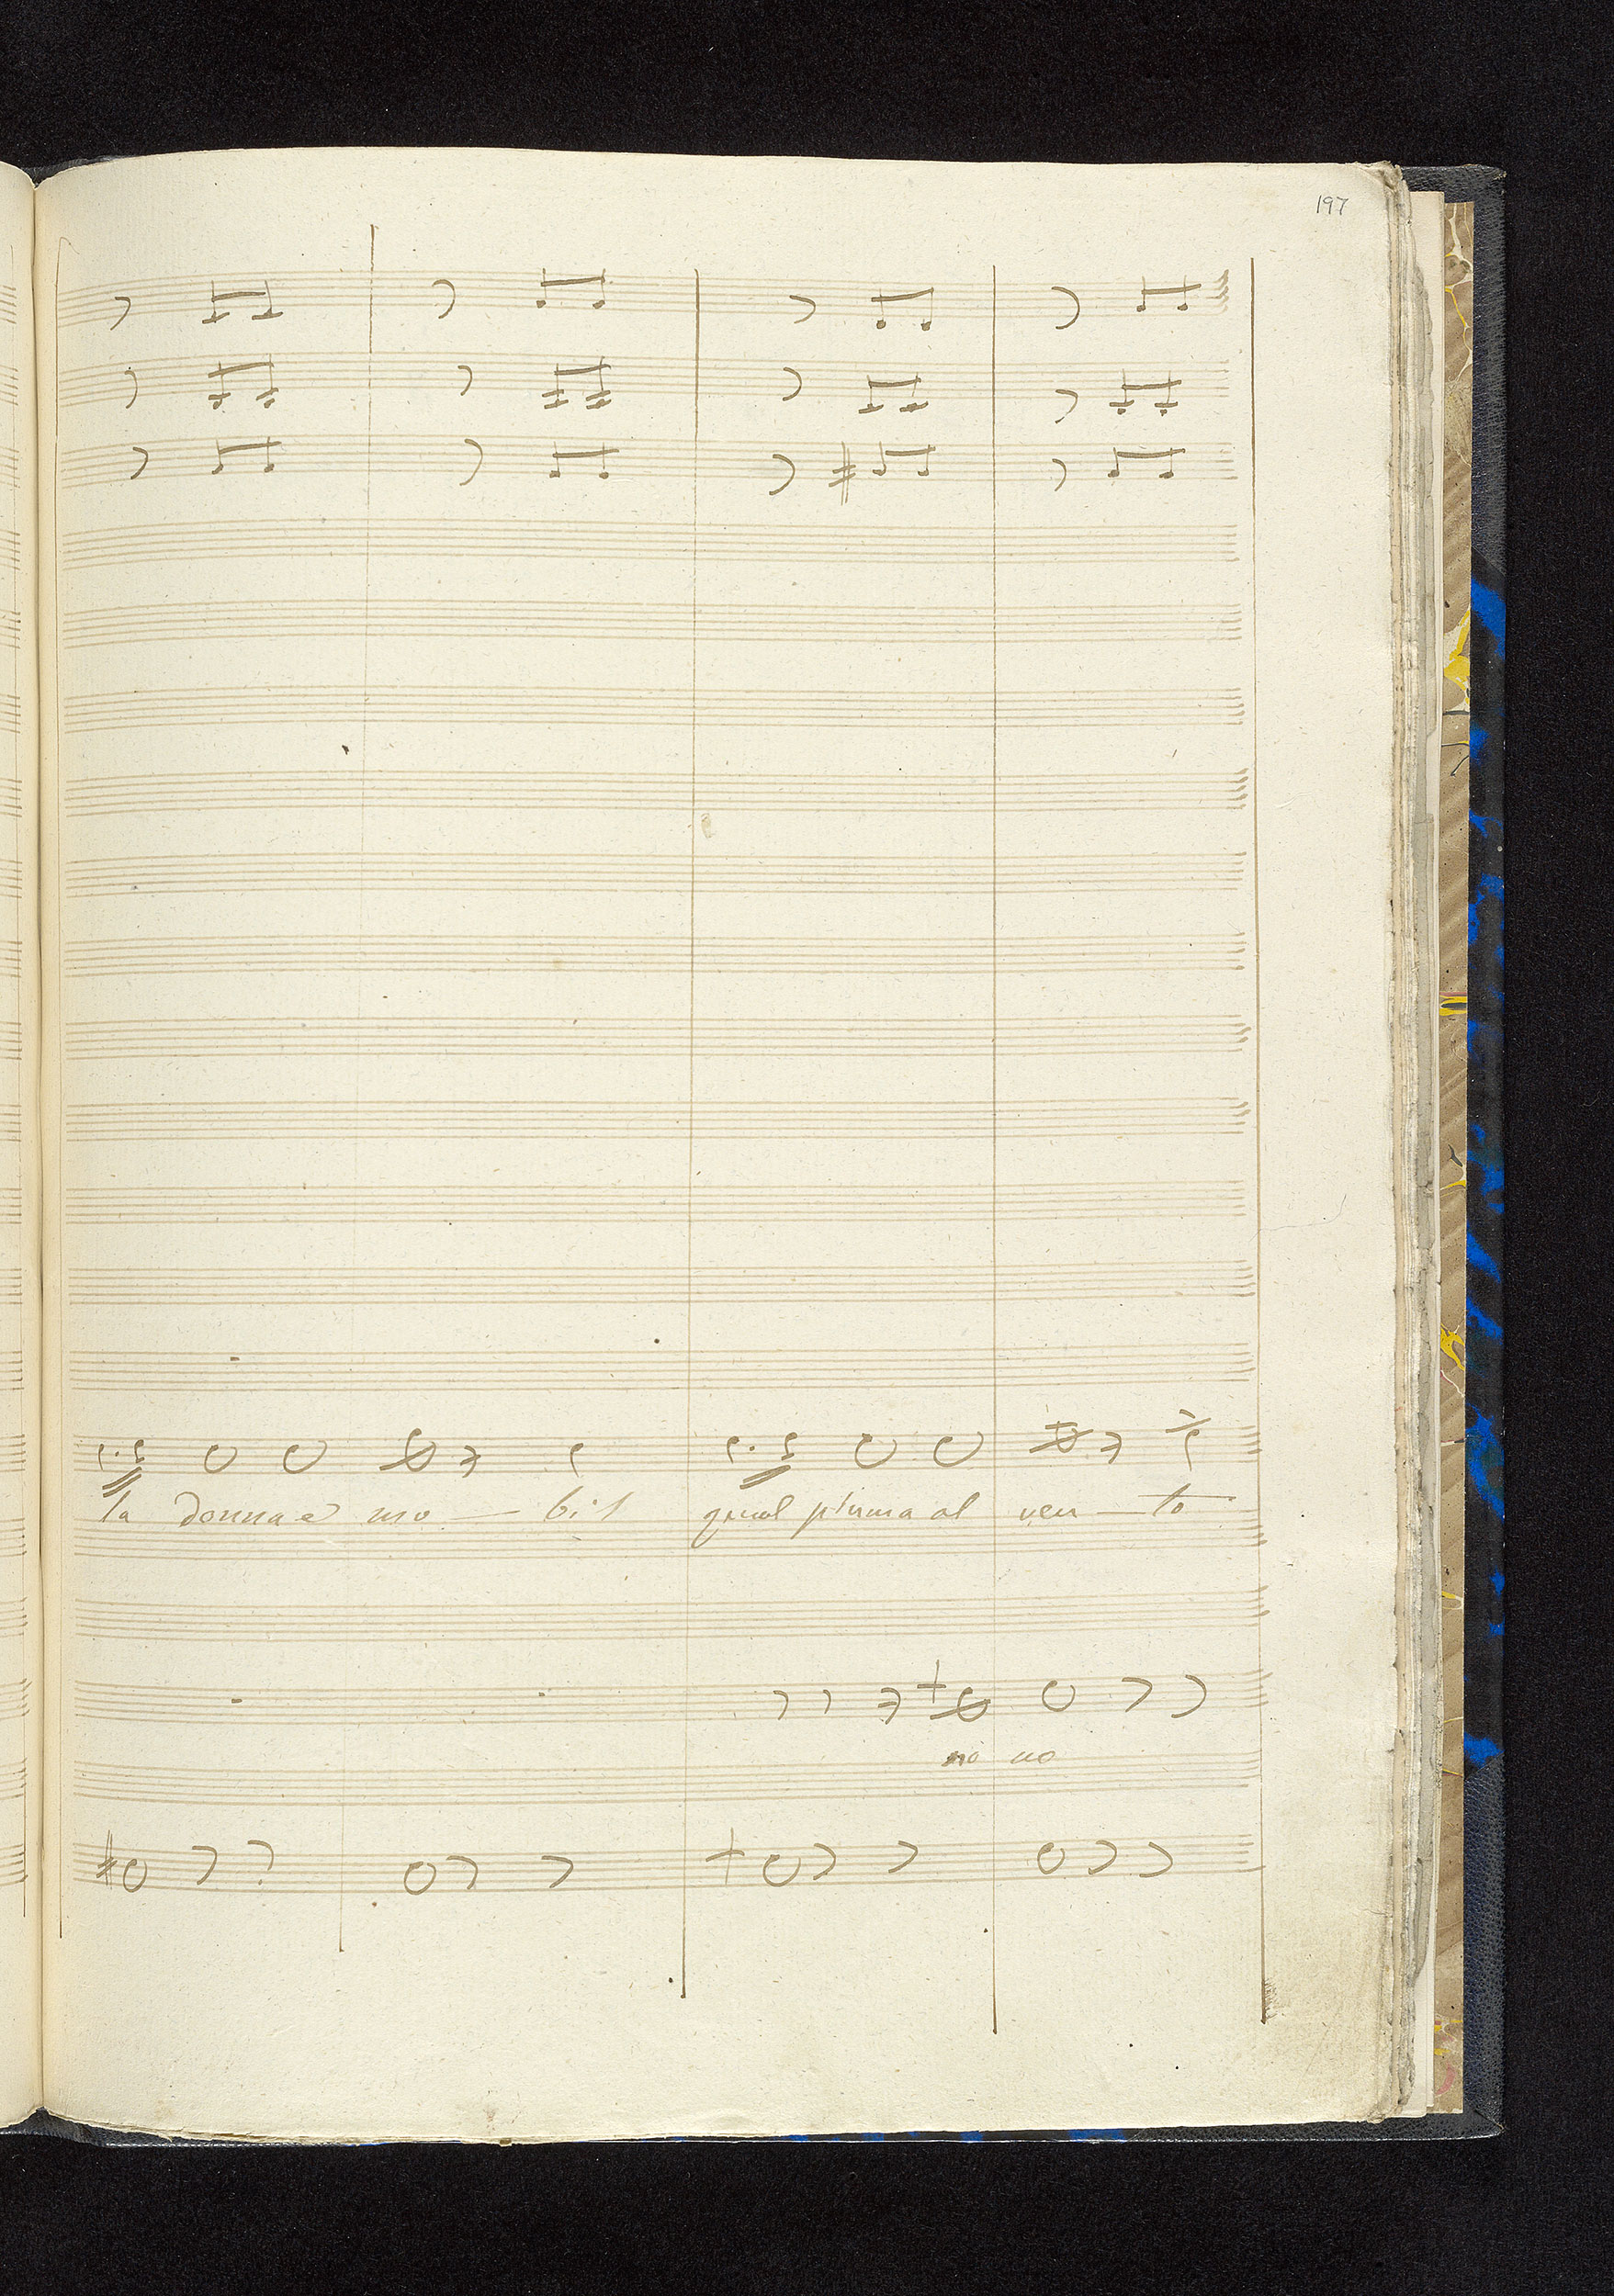 197
la donna e mo — bil qual piuma al ven — to
no no